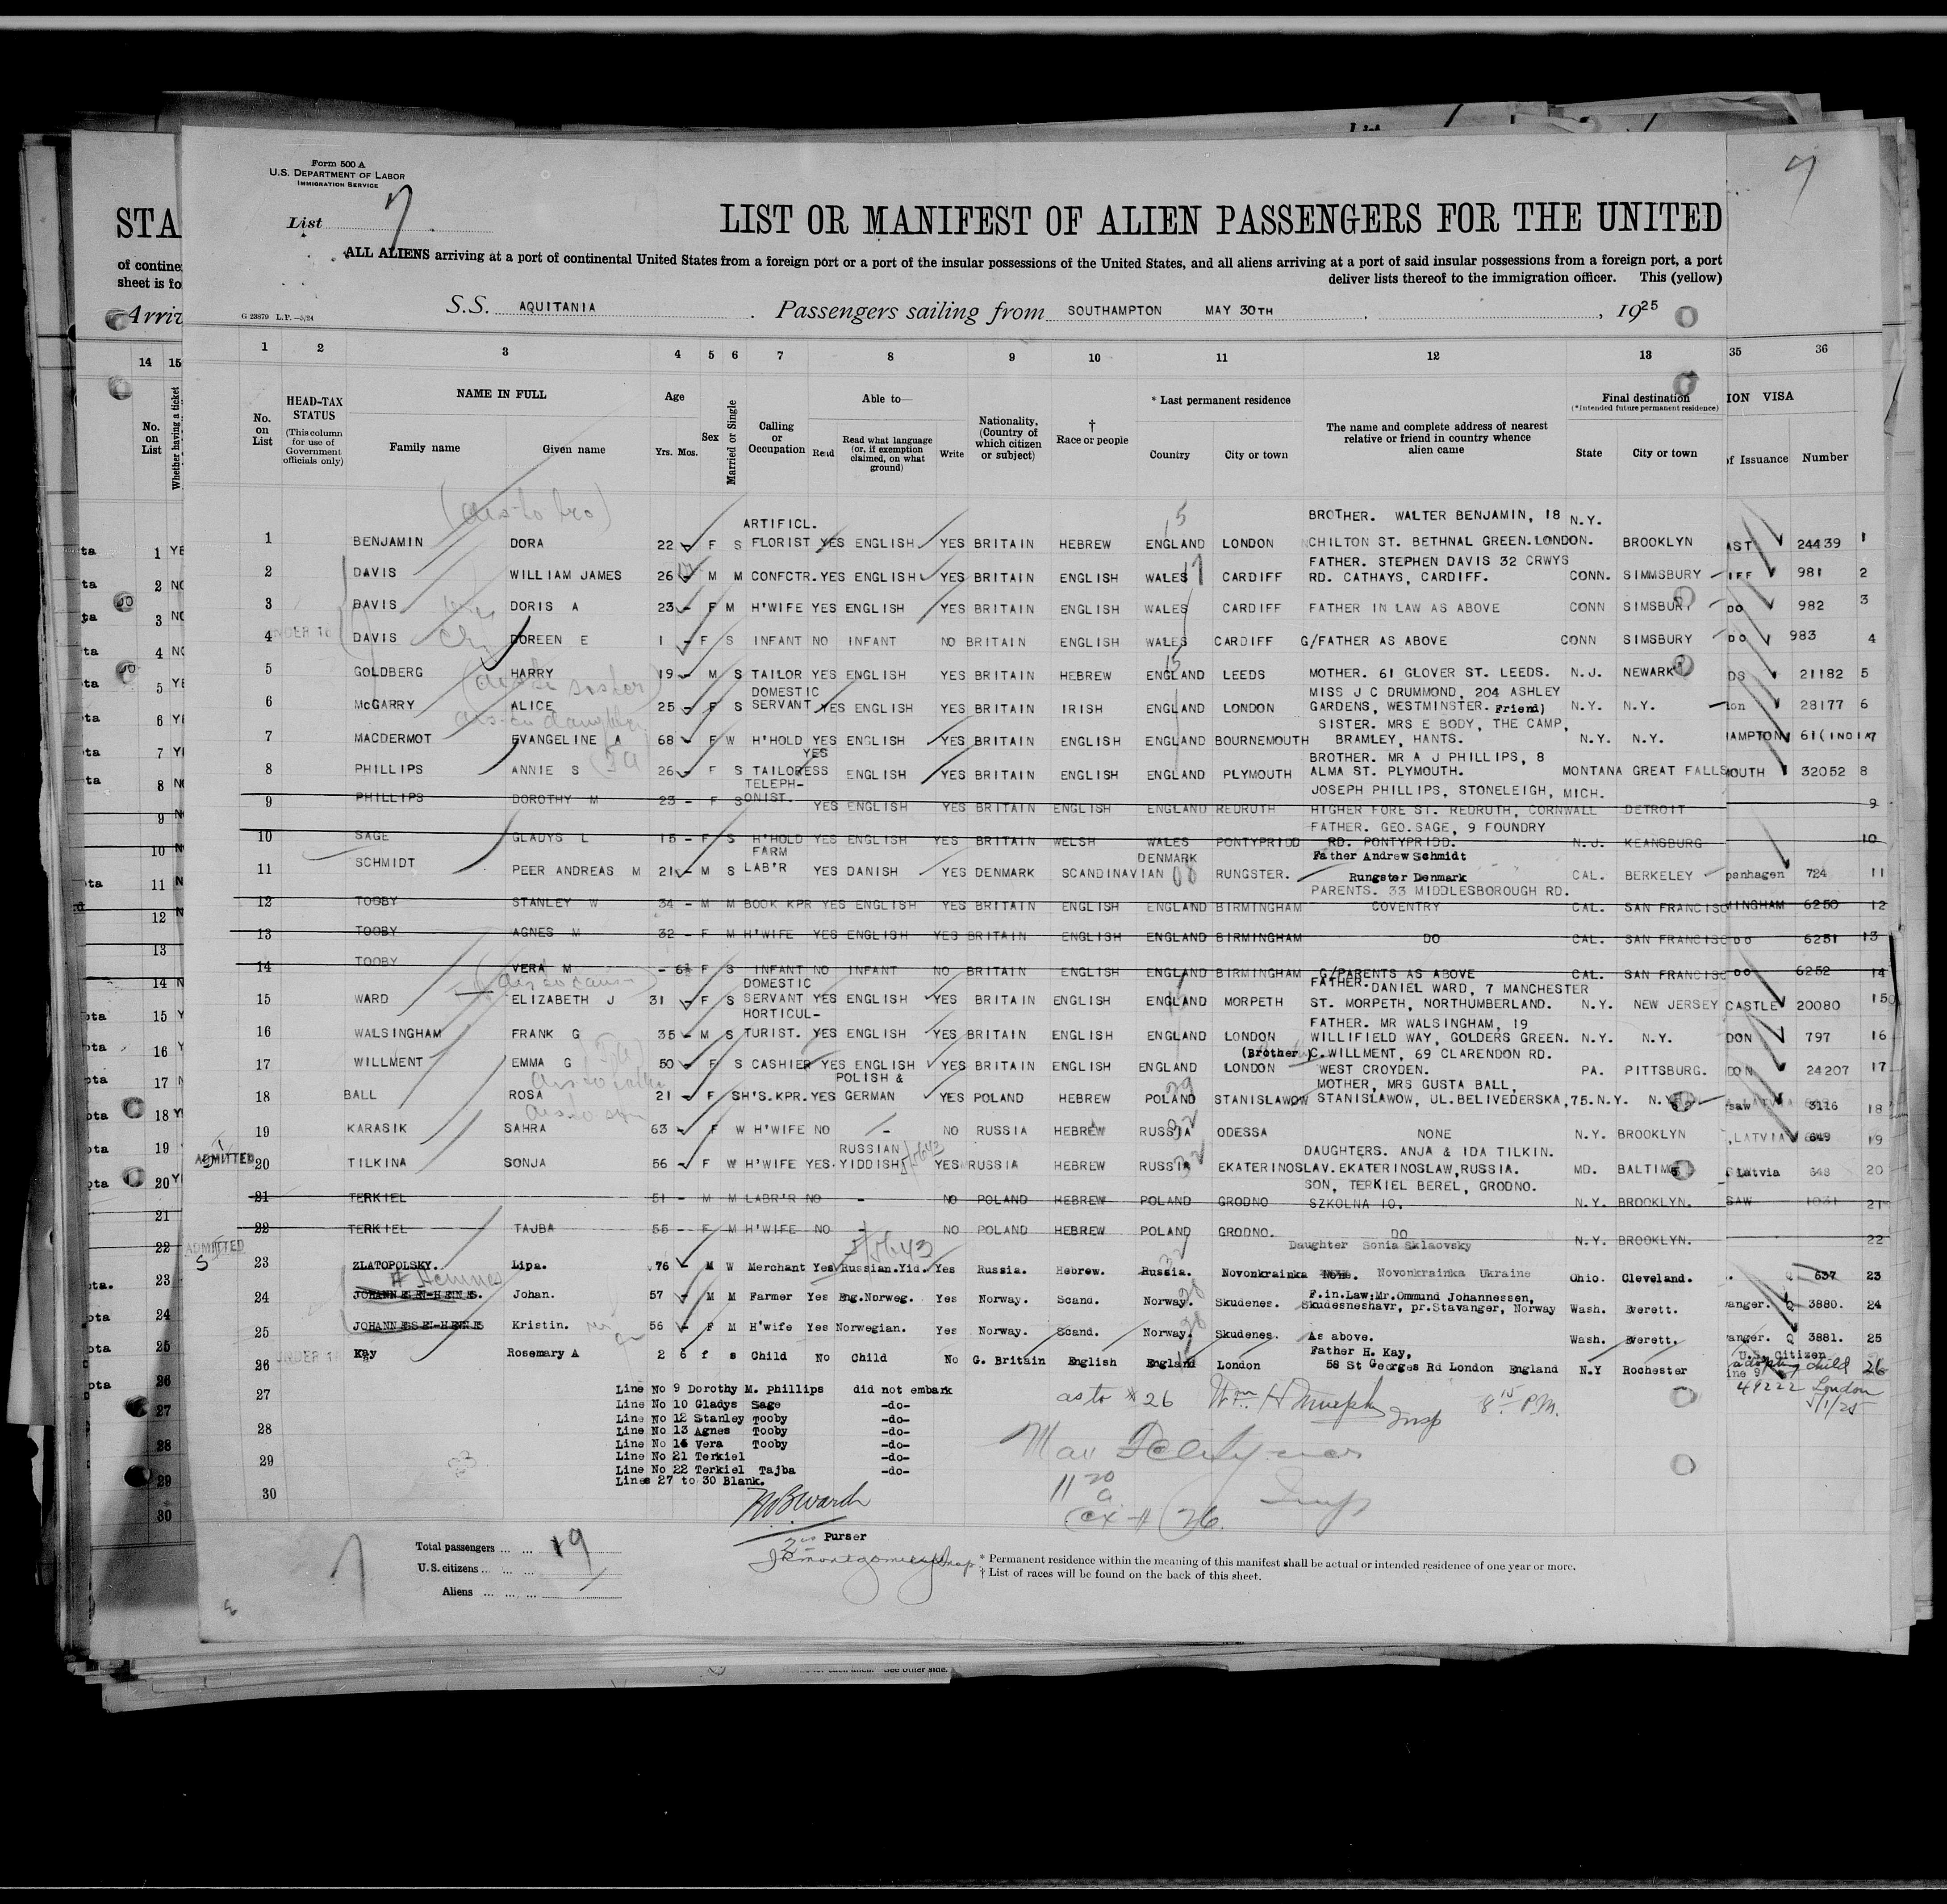 Form 500 A
U.S. DEPARTMENT OF LABOR
IMMIGRATION SERVICE
List 7
7
STA
LIST OR MANIFEST OF ALIEN PASSENGERS FOR THE UNITED
ALL ALIENS arriving at a port of continental United States from a foreign port or a port of the insular possessions of the United States, and all aliens arriving at a port of said insular possessions from a foreign port, a port
deliver lists thereof to the immigration officer. This (yellow)
of contine
sheet is fo
Arriv
G 23879 L.P. -5/24
S.S. AQUITANIA Passengers sailing from SOUTHAMPTON MAY 30TH , 1925
14 15 1 2 3 4 5 6 7 8 9 10 11 12 13 35 36
No. on List
Whether having a ticket
No. on List
HEAD-TAX STATUS
(This column for use of Government officials only)
NAME IN FULL
Family name Given name
Age
Yrs. Mos.
Sex
Married or Single
Calling or Occupation
Able to—
Read
Read what language (or, if exemption claimed, on what ground)
Write
Nationality, (Country of which citizen or subject)
† Race or people
* Last permanent residence
Country City or town
The name and complete address of nearest relative or friend in country whence alien came
Final destination
(*Intended future permanent residence)
State City or town
ION VISA
of Issuance Number
1 BENJAMIN DORA 22 F S ARTIFICL. FLORIST YES ENGLISH YES BRITAIN HEBREW ENGLAND LONDON BROTHER. WALTER BENJAMIN, 18 CHILTON ST. BETHNAL GREEN.LONDON. N.Y. BROOKLYN AST 24439 1
2 DAVIS WILLIAM JAMES 26 M M CONFCTR. YES ENGLISH YES BRITAIN ENGLISH WALES CARDIFF FATHER. STEPHEN DAVIS 32 CRWYS RD. CATHAYS, CARDIFF. CONN. SIMMSBURY IFF 981 2
3 DAVIS DORIS A 23 - F M H'WIFE YES ENGLISH YES BRITAIN ENGLISH WALES CARDIFF FATHER IN LAW AS ABOVE CONN SIMSBURY DO 982 3
4 DAVIS DOREEN E 1 - F S INFANT NO INFANT NO BRITAIN ENGLISH WALES CARDIFF G/FATHER AS ABOVE CONN SIMSBURY DO 983 4
5 GOLDBERG HARRY 19 - M S TAILOR YES ENGLISH YES BRITAIN HEBREW ENGLAND LEEDS MOTHER. 61 GLOVER ST. LEEDS. N.J. NEWARK DS 21182 5
6 McGARRY ALICE 25 F S DOMESTIC SERVANT YES ENGLISH YES BRITAIN IRISH ENGLAND LONDON MISS J C DRUMMOND, 204 ASHLEY GARDENS, WESTMINSTER. Friend) N.Y. N.Y. don 28177 6
7 MACDERMOT EVANGELINE A 68 - F W H'HOLD YES ENGLISH YES BRITAIN ENGLISH ENGLAND BOURNEMOUTH SISTER. MRS E BODY, THE CAMP, BRAMLEY, HANTS. N.Y. N.Y. HAMPTON 61 7
8 PHILLIPS ANNIE S 26 - F S TAILORESS YES ENGLISH YES BRITAIN ENGLISH ENGLAND PLYMOUTH BROTHER. MR A J PHILLIPS, 8 ALMA ST. PLYMOUTH. MONTANA GREAT FALLS MOUTH 32052 8
9 PHILLIPS DOROTHY M 23 - F S TELEPH-ONIST. YES ENGLISH YES BRITAIN ENGLISH ENGLAND REDRUTH JOSEPH PHILLIPS, STONELEIGH, HIGHER FORE ST. REDRUTH, CORNWALL MICH. DETROIT 9
10 SAGE GLADYS L 15 - F S H'HOLD YES ENGLISH YES BRITAIN WELSH WALES PONTYPRIDD FATHER. GEO.SAGE, 9 FOUNDRY RD. PONTYPRIDD. N.J. KEANSBURG 10
11 SCHMIDT PEER ANDREAS M 21 - M S FARM LAB'R YES DANISH YES DENMARK SCANDINAVIAN DENMARK RUNGSTER. Father Andrew Schmidt Rungster Denmark CAL. BERKELEY penhagen 724 11
12 TOOBY STANLEY W 34 - M M BOOK KPR YES ENGLISH YES BRITAIN ENGLISH ENGLAND BIRMINGHAM PARENTS. 33 MIDDLESBOROUGH RD. COVENTRY CAL. SAN FRANCISC MINGHAM 6250 12
13 TOOBY AGNES M 32 - F M H'WIFE YES ENGLISH YES BRITAIN ENGLISH ENGLAND BIRMINGHAM DO CAL. SAN FRANCISC DO 6251 13
14 TOOBY VERA M - 6½ F S INFANT NO INFANT NO BRITAIN ENGLISH ENGLAND BIRMINGHAM G/PARENTS AS ABOVE CAL. SAN FRANCISC DO 6252 14
15 WARD ELIZABETH J 31 - F S DOMESTIC SERVANT YES ENGLISH YES BRITAIN ENGLISH ENGLAND MORPETH FATHER. DANIEL WARD, 7 MANCHESTER ST. MORPETH, NORTHUMBERLAND. N.Y. NEW JERSEY CASTLE 20080 15
16 WALSINGHAM FRANK G 35 - M S HORTICUL-TURIST. YES ENGLISH YES BRITAIN ENGLISH ENGLAND LONDON FATHER. MR WALSINGHAM, 19 WILLIFIELD WAY, GOLDERS GREEN. N.Y. N.Y. DON 797 16
17 WILLMENT EMMA G 50 F S CASHIER YES ENGLISH YES BRITAIN ENGLISH ENGLAND LONDON (Brother) C.WILLMENT, 69 CLARENDON RD. WEST CROYDEN. PA. PITTSBURG. DON 24207 17
18 BALL ROSA 21 - F S H'S.KPR. YES POLISH & GERMAN YES POLAND HEBREW POLAND STANISLAWOW MOTHER, MRS GUSTA BALL, STANISLAWOW, UL.BELIVEDERSKA,75. N.Y. N.Y. saw 3116 18
19 KARASIK SAHRA 63 - F W H'WIFE NO - NO RUSSIA HEBREW RUSSIA ODESSA NONE N.Y. BROOKLYN ,LATVIA 649 19
ADMITTED
20 TILKINA SONJA 56 - F W H'WIFE YES RUSSIAN YIDDISH YES RUSSIA HEBREW RUSSIA EKATERINOSLAV. DAUGHTERS. ANJA & IDA TILKIN. EKATERINOSLAW,RUSSIA. MD. BALTIM Latvia 648 20
21 TERKIEL 51 - M M LABR'R NO - NO POLAND HEBREW POLAND GRODNO SON, TERKIEL BEREL, GRODNO. SZKOLNA 10. N.Y. BROOKLYN. SAW 1031 21
22 TERKIEL TAJBA 55 - F M H'WIFE NO - NO POLAND HEBREW POLAND GRODNO. DO N.Y. BROOKLYN. 22
ADMITTED
23 ZLATOPOLSKY. Lipa. 76 M W Merchant Yes Russian.Yid. Yes Russia. Hebrew. Russia. Novonkrainka Daughter Sonia Sklaovsky None. Novonkrainka Ukraine Ohio. Cleveland. Q 637 23
24 JOHANNESEN-HEINES. Johan. 57 - M M Farmer Yes Eng.Norweg. Yes Norway. Scand. Norway. Skudenes. F.in.Law;Mr.Ommund Johannessen, Skudesneshavr, pr.Stavanger, Norway Wash. Everett. vanger. Q 3880. 24
25 JOHANNESSEN-HEINES Kristin. 56 - F M H'wife Yes Norwegian. Yes Norway. Scand. Norway. Skudenes. As above. Wash. Everett. vanger. Q 3881. 25
UNDER 16
26 Kay Rosemary A 2 6 f s Child No Child No G. Britain English England London Father H. Kay, 58 St Georges Rd London England N.Y Rochester U.S. Citizen adopting child 26
49222 London
27 Line No 9 Dorothy M. Phillips did not embark
as to # 26 Wm H Murphy Insp 8 15 P.M.
Line No 10 Gladys Sage -do-
28 Line No 12 Stanley Tooby -do-
Line No 13 Agnes Tooby -do-
Line No 14 Vera Tooby -do-
29 Line No 21 Terkiel -do-
Line No 22 Terkiel Tajba -do-
30 Lines 27 to 30 Blank.
11 20 a
(ex # 26
Purser
Total passengers 19
U.S. citizens
Aliens
* Permanent residence within the meaning of this manifest shall be actual or intended residence of one year or more.
† List of races will be found on the back of this sheet.
See other side.